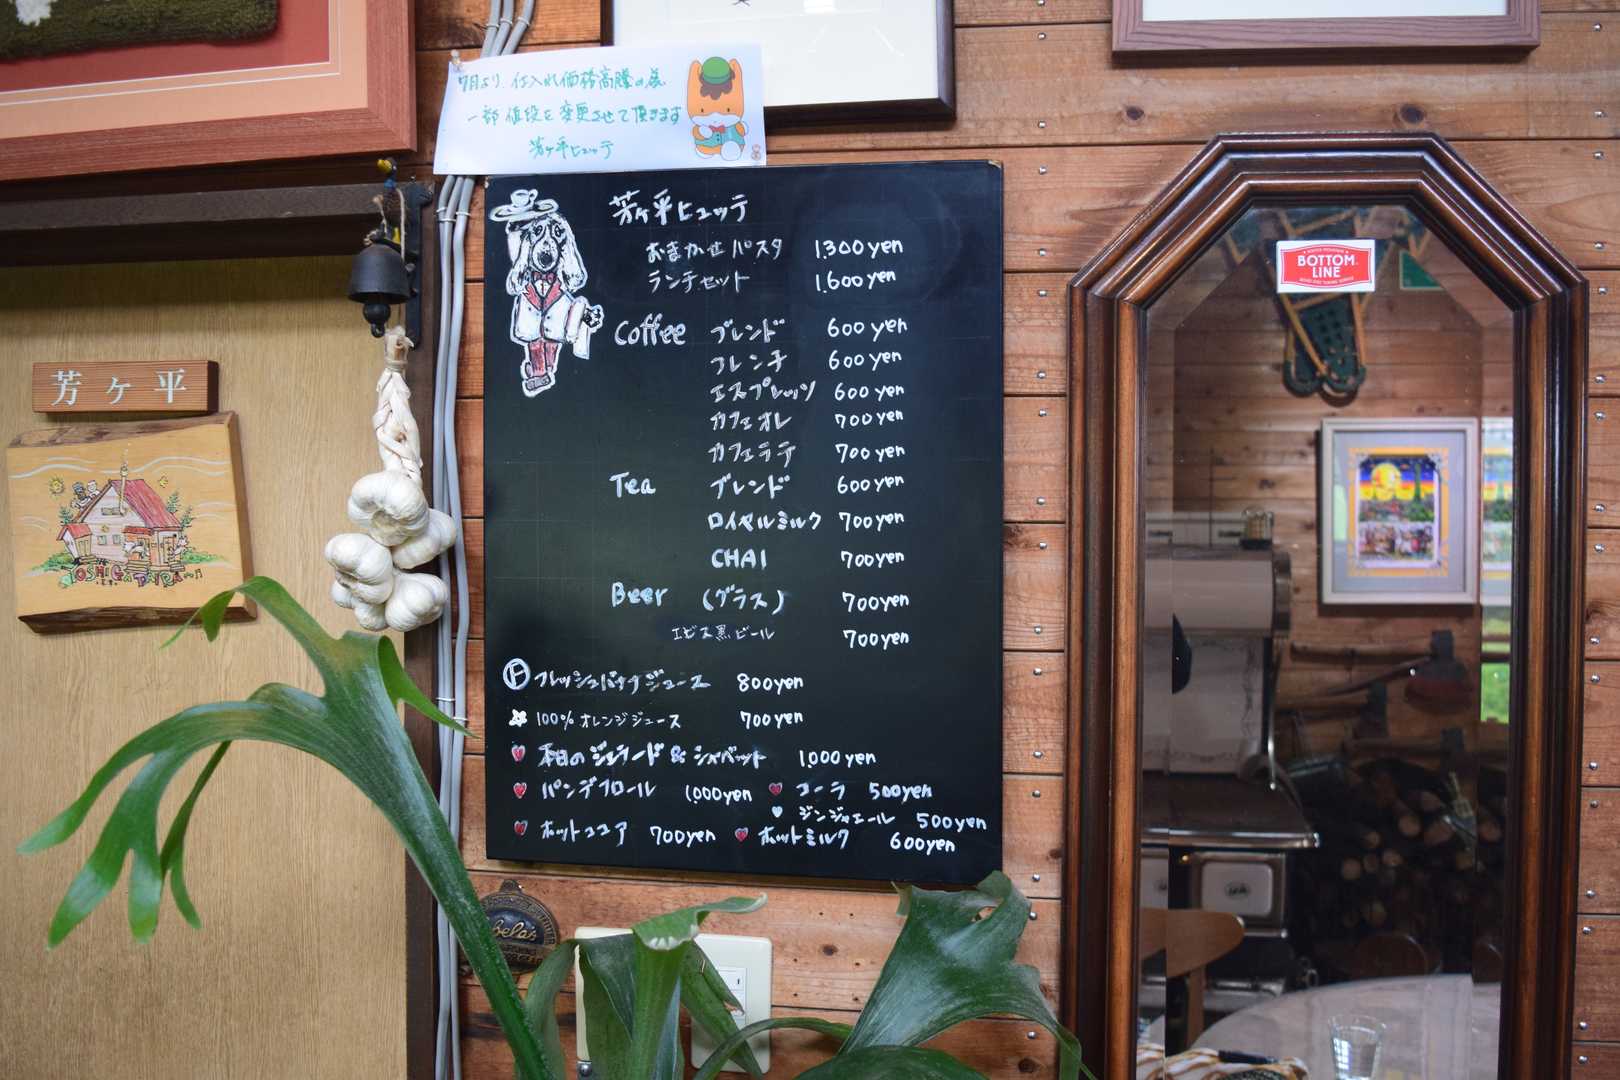 7月より、仕入れ価格高騰の為
一部値段を変更させて頂きます
芳ヶ平ヒュッテ
芳ヶ平ヒュッテ
おまかせパスタ 1.300yen
ランチセット 1.600yen
Coffee ブレンド 600yen
フレンチ 600yen
エスプレッソ 600yen
カフェオレ 700yen
カフェラテ 700yen
Tea ブレンド 600yen
ロイヤルミルク 700yen
CHAI 700yen
Beer (グラス) 700yen
エビス黒ビール 700yen
Ⓕ フレッシュバナナジュース 800yen
100% オレンジジュース 700yen
本日のジェラード & シャベット 1.000yen
パンデフロール 1.000yen コーラ 500yen
ジンジャエール 500yen
ホットココア 700yen ホットミルク 600yen
芳ヶ平
YOSHIGATAIRA
BOTTOM
LINE